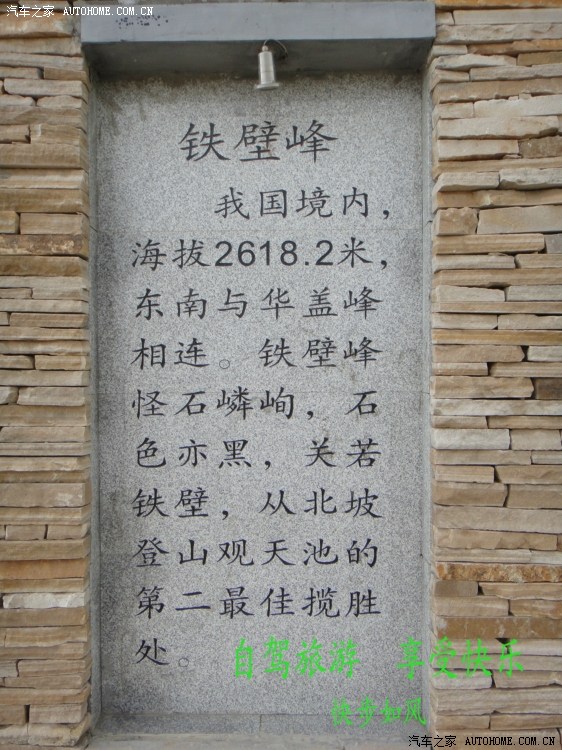 汽车之家 AUTOHOME.COM.CN
铁壁峰
我国境内，
海拔2618.2米，
东南与华盖峰
相连。铁壁峰
怪石嶙峋，石
色亦黑，关若
铁壁，从北坡
登山观天池的
第二最佳揽胜
处。
自驾旅游 享受快乐
快步如风
汽车之家 AUTOHOME.COM.CN